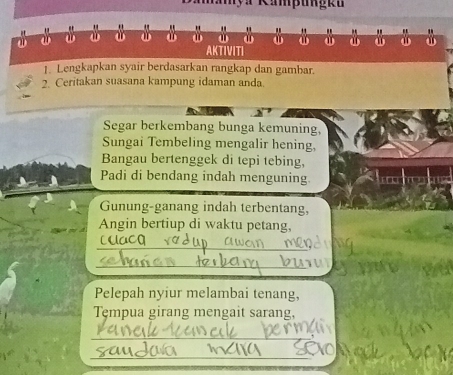 Damainya Kampungku
AKTIVITI
1. Lengkapkan syair berdasarkan rangkap dan gambar.
2. Ceritakan suasana kampung idaman anda.
Segar berkembang bunga kemuning,
Sungai Tembeling mengalir hening,
Bangau bertenggek di tepi tebing,
Padi di bendang indah menguning.
Gunung-ganang indah terbentang,
Angin bertiup di waktu petang,
cuaca redup awan mendung
seharian terbang burung
Pelepah nyiur melambai tenang,
Tempua girang mengait sarang,
kanak-kanak bermain
saudara mara